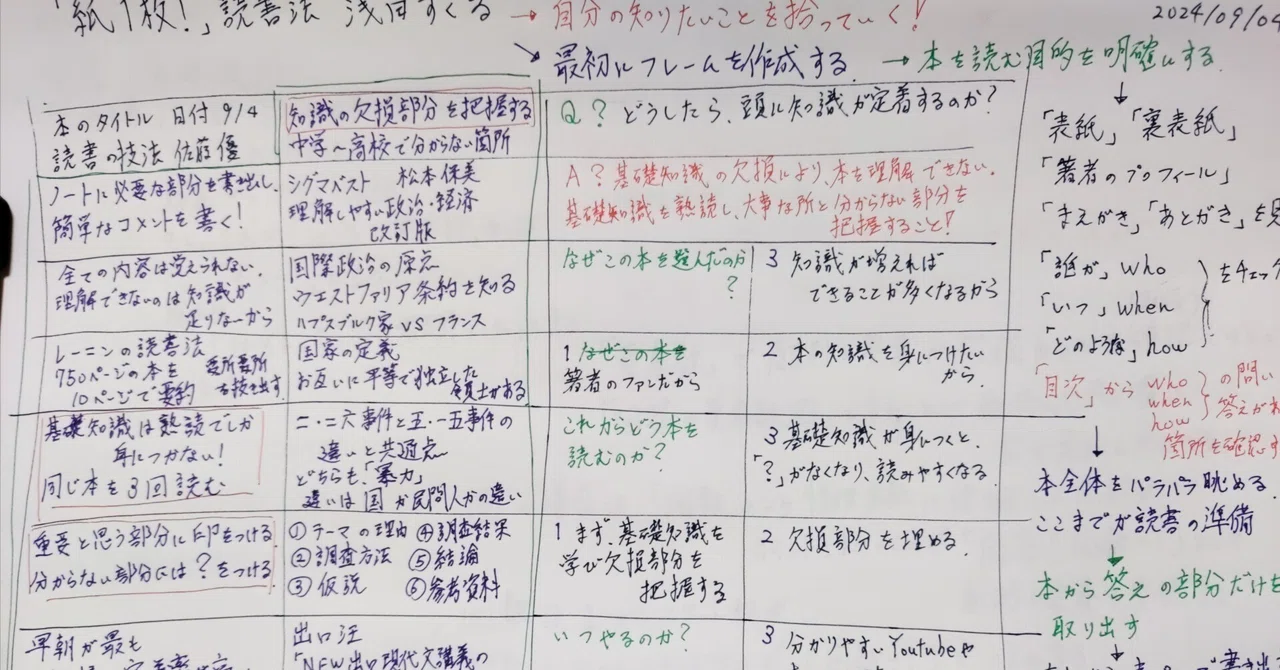 「紙1枚!」読書法 浅田すぐる → 自分の知りたいことを拾っていく!
2024/09/04
最初にフレームを作成する → 本を読む目的を明確にする
本のタイトル 日付 9/4
読書の技法 佐藤優
知識の欠損部分を把握する
中学~高校で分からない箇所
Q? どうしたら、頭に知識が定着するのか?
ノートに必要な部分を書き出し、
簡単なコメントを書く!
シグマベスト 松本保美
理解しやすい政治・経済
改訂版
A? 基礎知識の欠損により、本を理解できない。
基礎知識を熟読し、大事な所と分からない部分を
把握すること!
全ての内容は覚えられない。
理解できないのは知識が
足りないから
国際政治の原点
ウエストファリア条約を知る
ハプスブルク家 vs フランス
なぜこの本を選んだのか
?
3 知識が増えれば
できることが多くなるから
レーニンの読書法
750ページの本を
10ページで要約
要所要所
を抜き出す
国家の定義
お互いに平等で独立した
領土がある
1 なぜこの本を
著者のファンだから
2 本の知識を身につけたい
から。
基礎知識は熟読でしか
身につかない!
同じ本を3回読む
二・二六事件と五・一五事件の
違いと共通点
どちらも、「暴力」
違いは国か民間人かの違い
これからどう本を
読むのか?
3 基礎知識が身につくと、
「?」がなくなり、読みやすくなる
重要と思う部分に印をつける
分からない部分には?をつける
① テーマの理由 ④ 調査結果
② 調査方法 ⑤ 結論
③ 仮説 ⑥ 参考資料
1 まず、基礎知識を
学び欠損部分を
把握する
2 欠損部分を埋める。
早朝が最も
出口汪
「NEW出口現代文講義の
いつやるのか?
3 分かりやすいYoutubeや
↓
「表紙」「裏表紙」
「著者のプロフィール」
「まえがき」「あとがき」を
「誰が」who
「いつ」when
「どのような」how
をチェック
「目次」から who
when
how
の問い
答えが
箇所を確認
↓
本全体をパラパラ眺める
ここまでが読書の準備
↓
本から答えの部分だけを
取り出す
↓